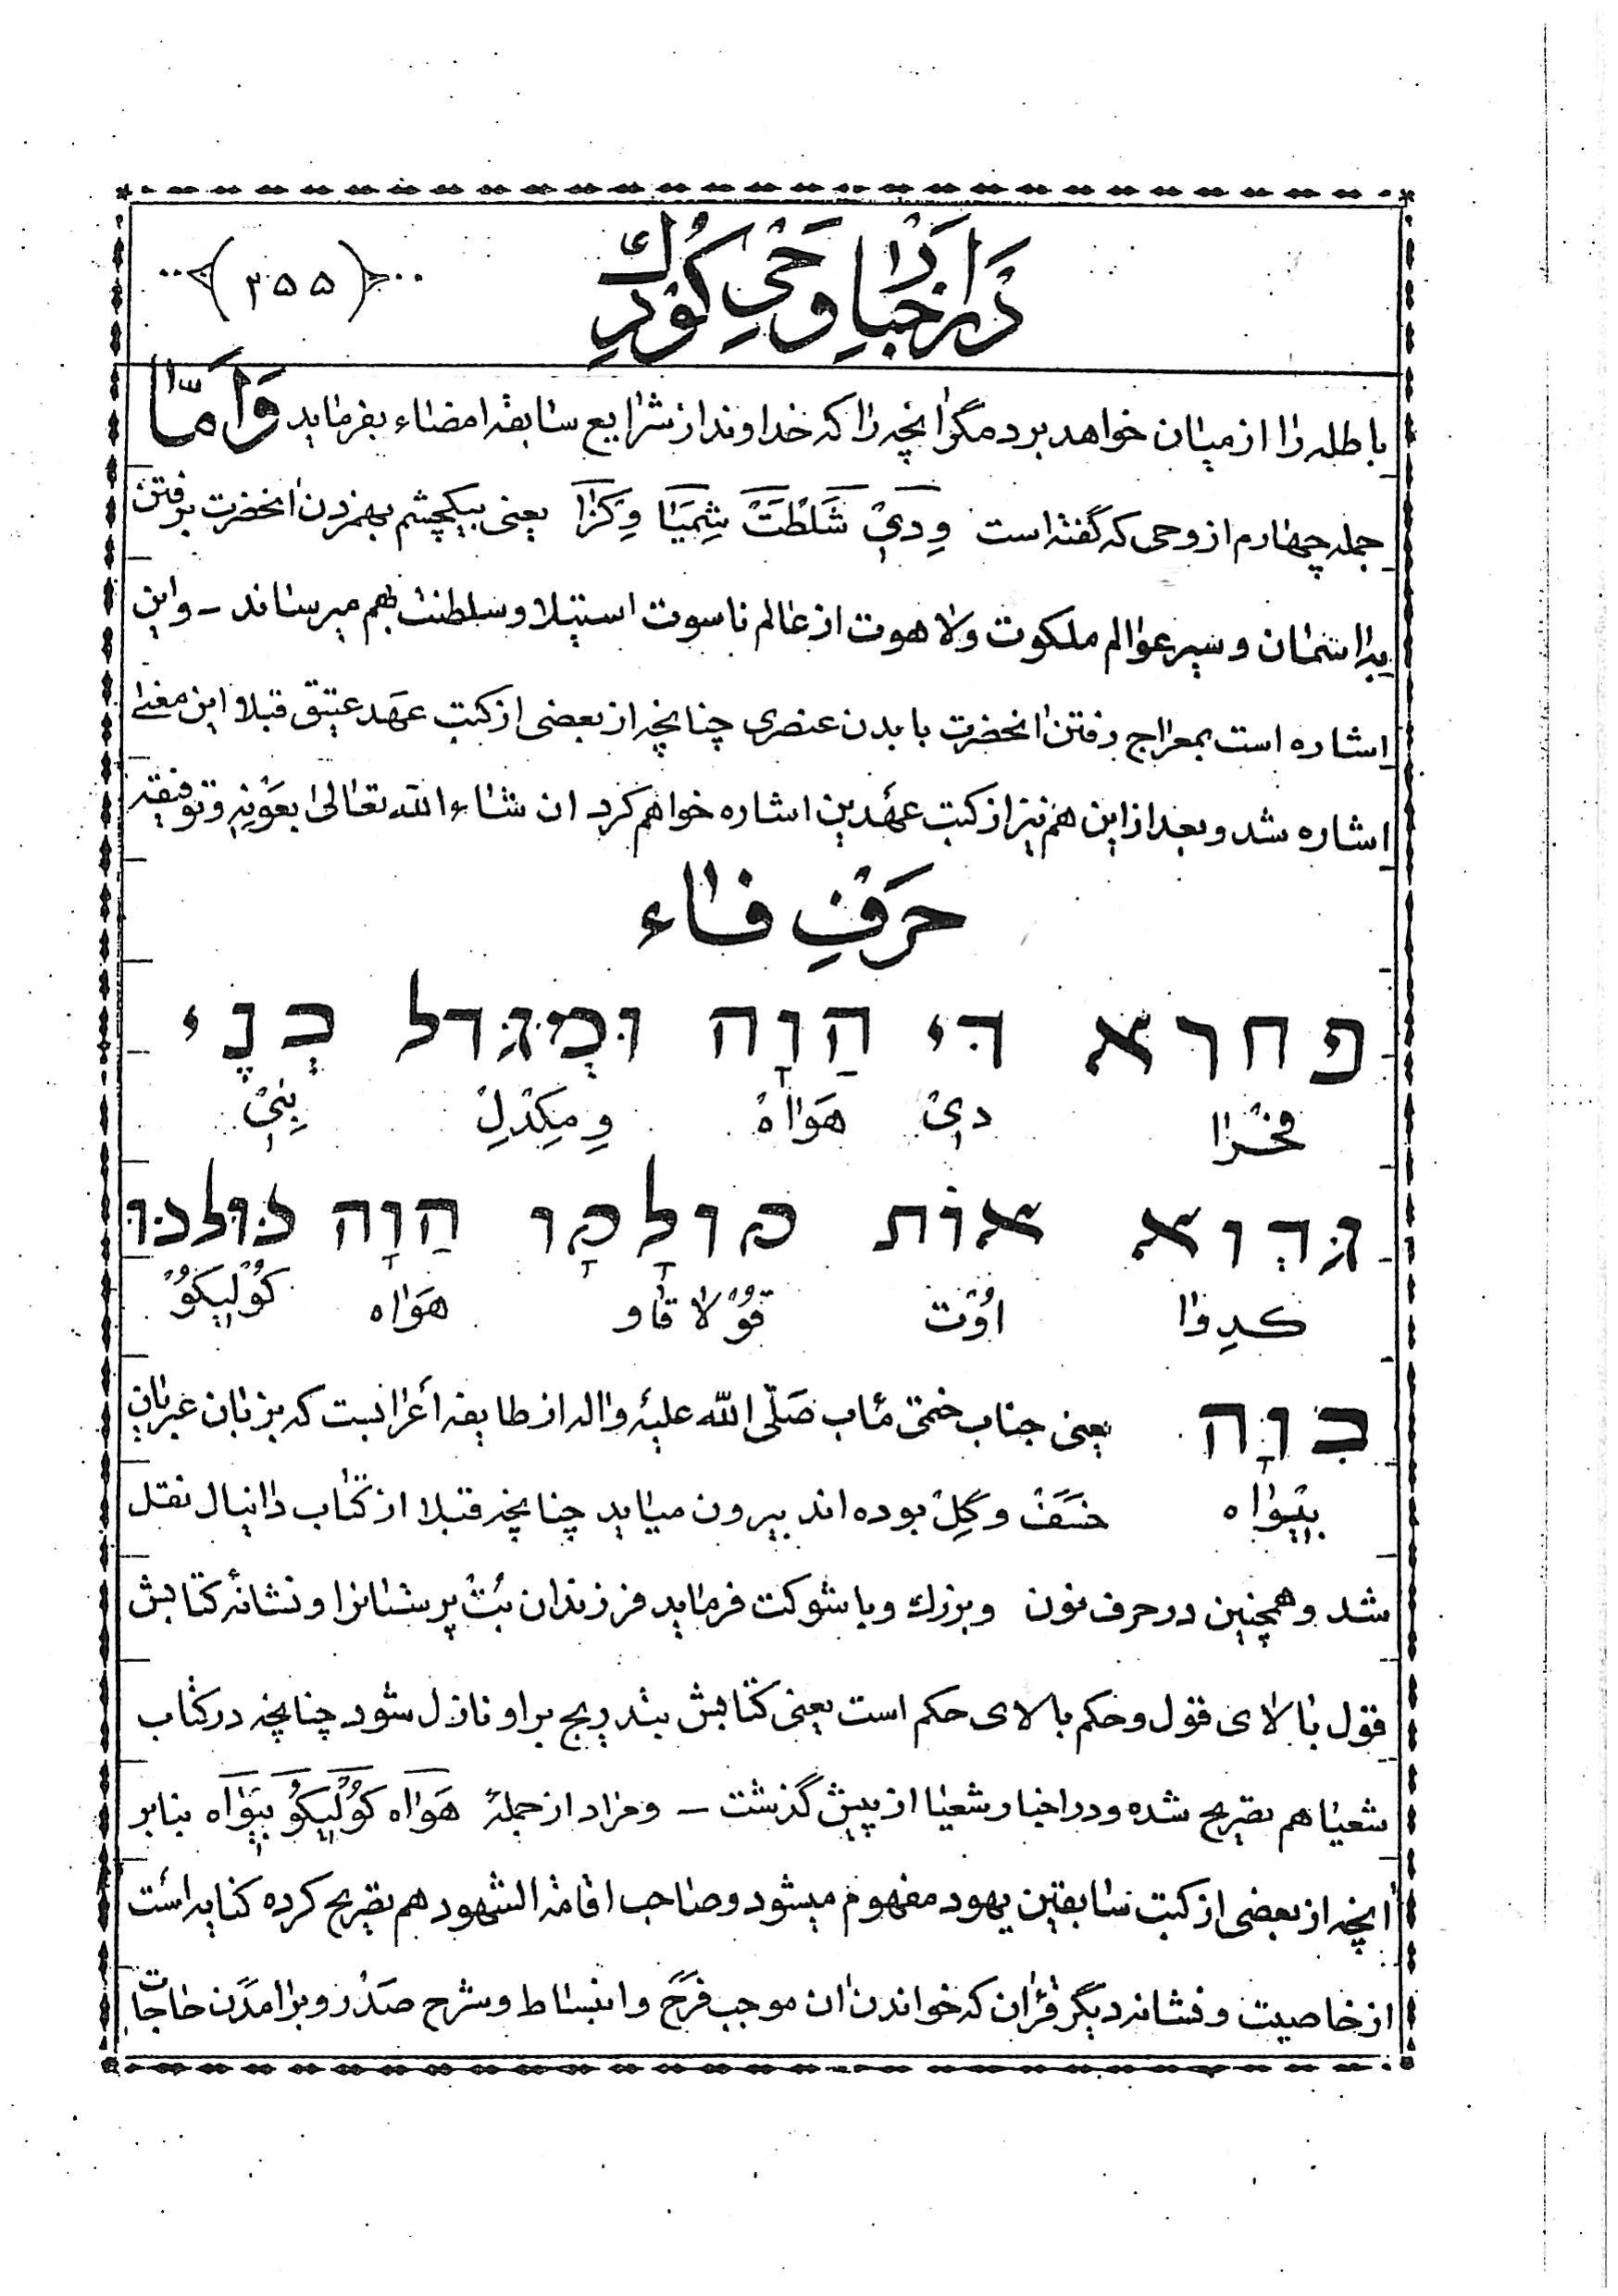 در اخبار وحی کودک
(۲۵۵)
باطله را از میان خواهد برد مگر انچه را که خداوند از شرایع سابقه امضاء بفرماید وَاَمّا
جمله چهارم از وحی که گفته است وِدیْ شَلْطَتْ شِمَیّا وِکَرّا یعنی بیکچشم بهمزدن انحضرت برفتن
براسمان و سیر عوالم ملکوت ولاهوت از عالم ناسوت استیلا و سلطنت بهم میرساند – واین
اشاره است بمعراج رفتن انحضرت با بدن عنصری چنانچه از بعضی از کتب عهد عتیق قبلا این معنی
اشاره شد و بعد از این هم نیز از کتب عهدین اشاره خواهم کرد ان شاء الله تعالی بعَوْنِهِ وتوفیقه
حَرفِ فاء
פחרא דּי הַוָה וּמְגּדל בְנָי
فخْرا دیْ هَوٰاهْ وِمِکِدْلِ بِنیْ
גּדְוא אוֹת קוּלָקָו הַוָה כּוּלכּוּ
کدِوا اوُت قوُلاقاو هَوٰاه کوُلیکوُ
בִוָה یعنی جناب ختمی مٔاب صَلّی الله علیه واله از طایفه أعرابست که بزبان عبرانی
بیِوٰاه خَسَفْ و گِلْ بوده اند بیرون میاید چنانچه قبلا از کتاب دانیال نقل
شد و همچنین در حرف نون و بزرك و با شوکت فرماید فرزندان بُتْ پرستانرا و نشانه کتابش
قول بالای قول و حکم بالای حکم است یعنی کتابش بتدریج براو نازل شود چنانچه در کتاب
شعیا هم تصریح شده و در اخبار شعیا از پیش گذشت – و مراد از جملهٔ هَوٰاه کوُلیکوُ بیِوٰاه بنابر
أنچه از بعضی از کتب سابقین یهود مفهوم میشود و صاحب اقامة الشهود هم تصریح کرده کنایه است
از خاصیت و نشانه دیگر قران که خواندن ان موجب فرَح و انبساط و شرح صَدْر و برامدَن حاجات